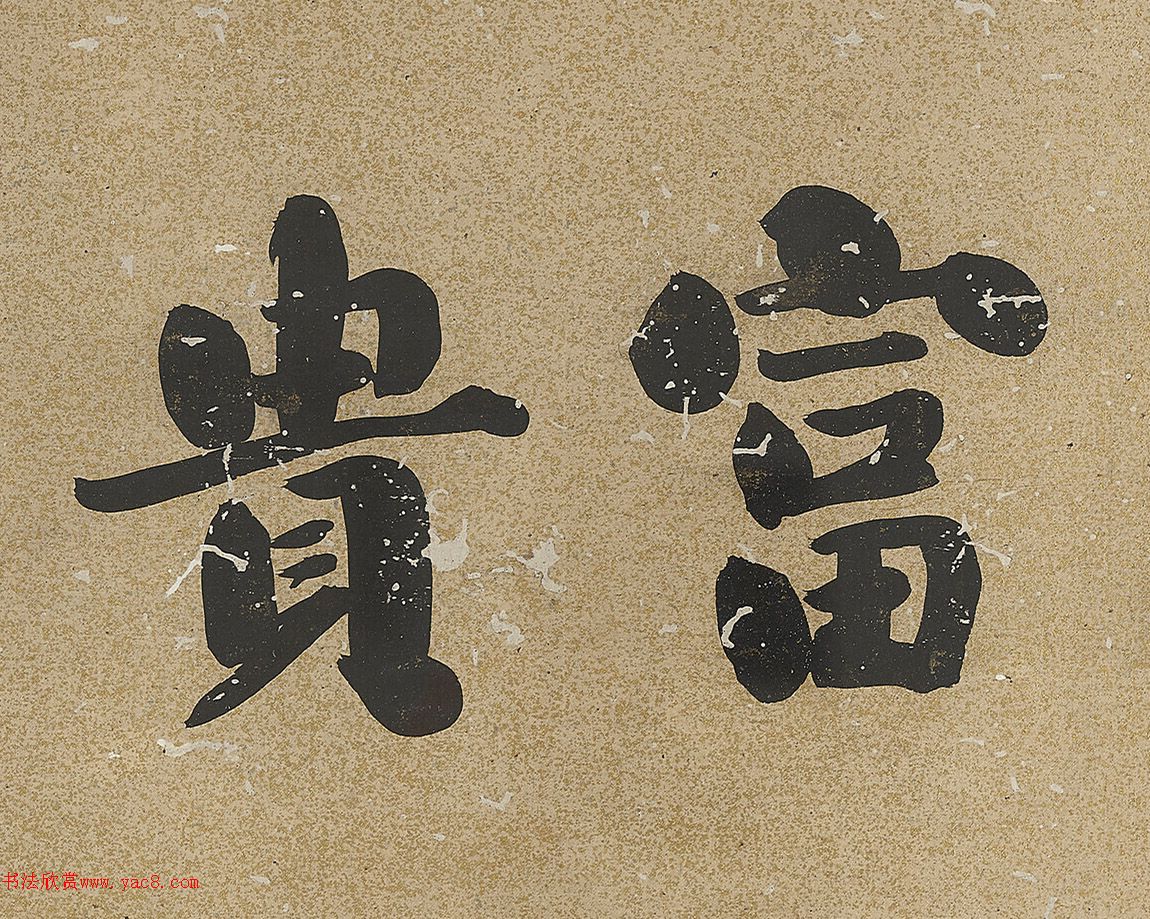 富貴
书法欣赏www.yac8.com